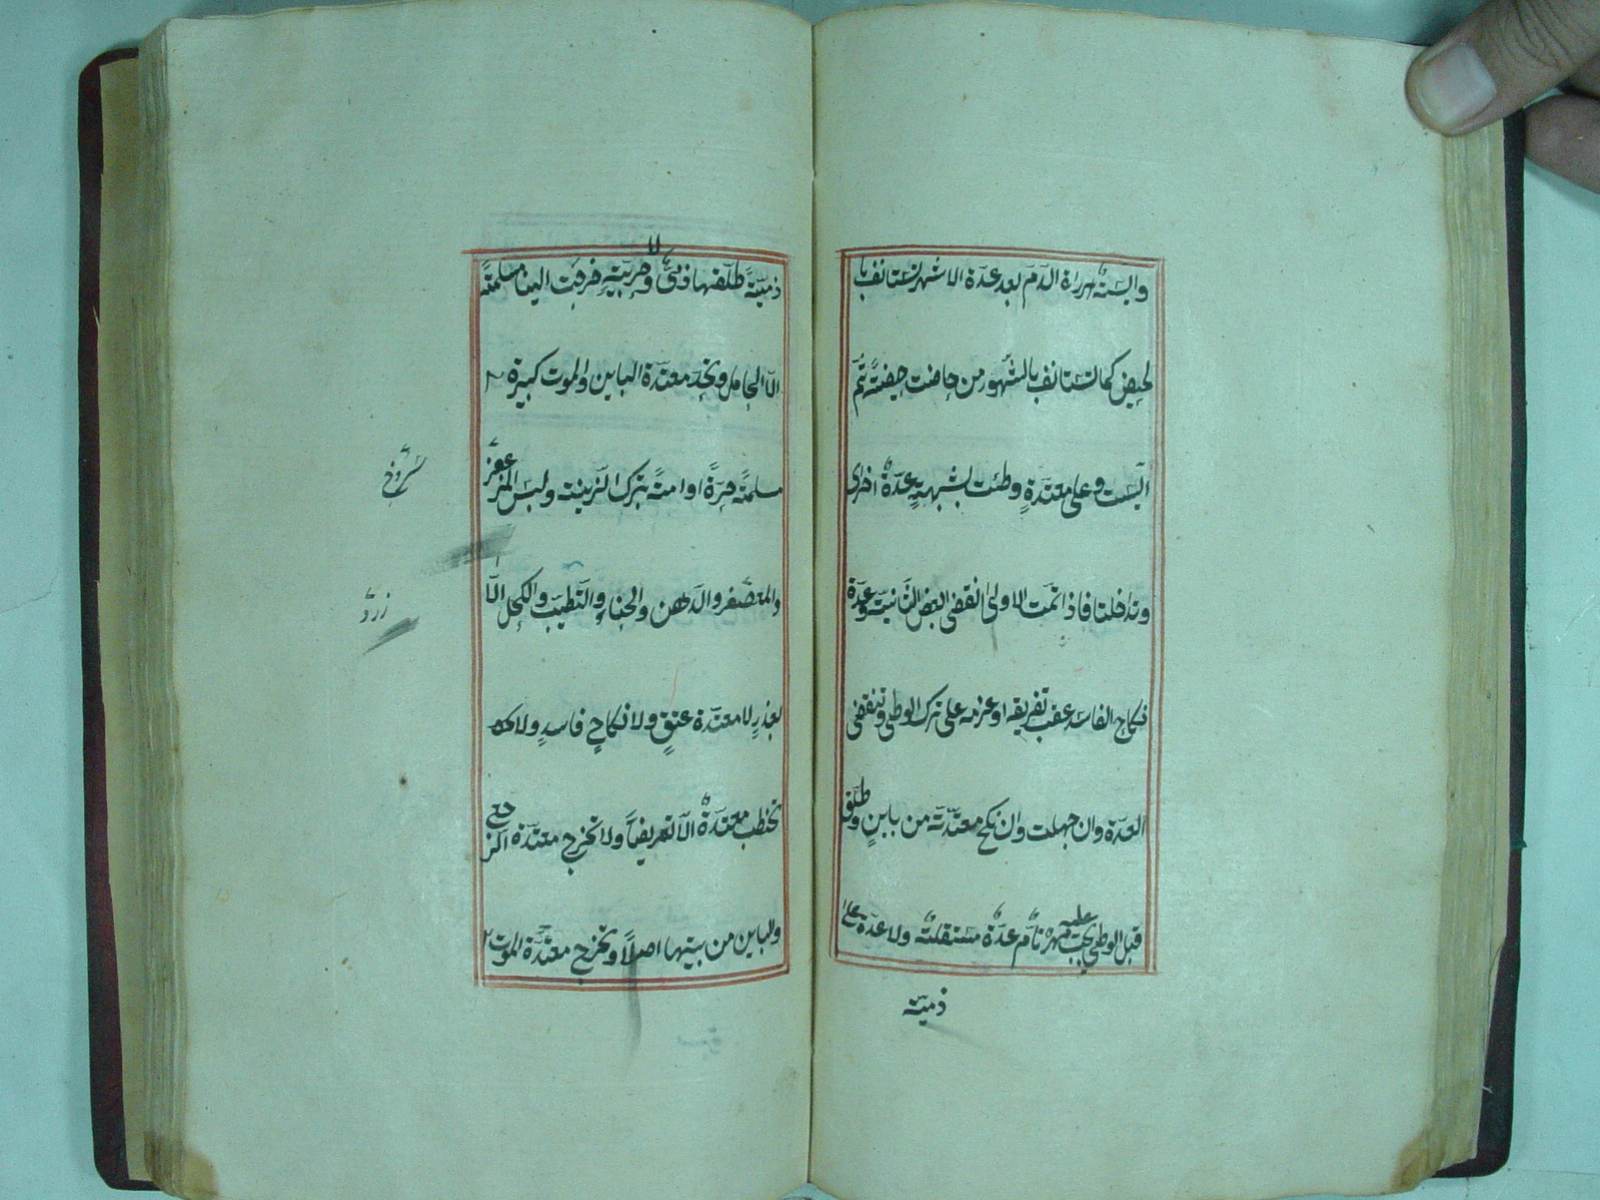 وآيسة رأت الدم بعد عدة الاشهر تستانف با
لحيض كما تستانف بالشهور من حاضت حيضة ثم
ايست وعلى معتدة وطئت بشبهة عدة اخرى
وتداخلتا فاذا تمت الاولى انقضى البعض الثانية وعدة
نكاح الفاسد عقب تفريقه او عزمه على ترك الوطئ وتنقضى
العدة وان جهلت وان نكح معتدته من باين وطلق
قبل الوطئ يجب عليه مهر تام عدة مستقلة ولا عدة على
ذمية
ذمية طلقها ذمى و حربية خرجت الينا مسلمة
الا الحامل وتحد معتدة الباين والموت كبيرة
مسلمة حرة او امة بترك الزينة ولبس المزعفر
والمعصفر والدهن والحناء والتطيب والكحل الا
سروخ
زرد
بعذر لا معتدة عتق ولا نكاح فاسد ولا
تخطب معتدة الا تعريضا ولا تخرج معتدة الرجعى
والباين من بيتها اصلا وتخرج معتدة الموت